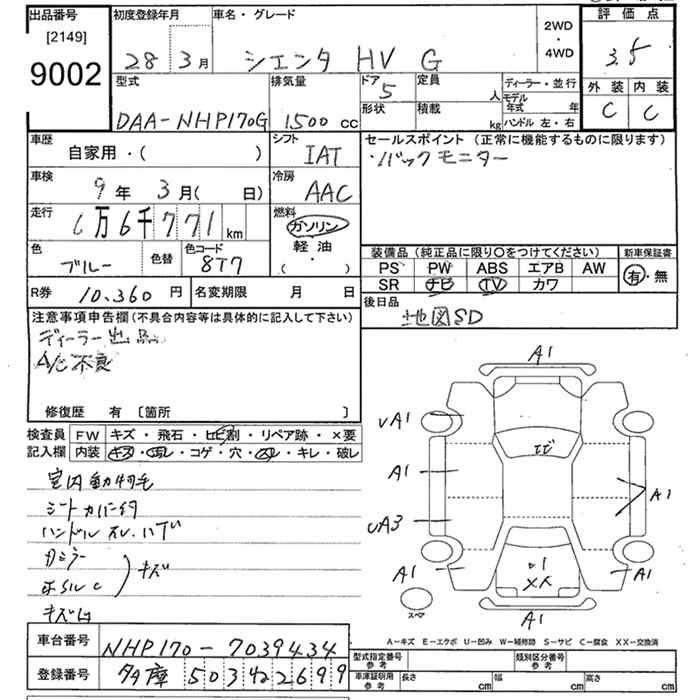 出品番号
[2149]
9002
初度登録年月
28年 3月
車名・グレード
シエンタ HV G
2WD
・
4WD
評価点
3.5
外装 内装
C C
型式
DAA-NHP170G
排気量
1500cc
ドア
5
形状
定員
人
積載
kg
ディーラー・並行
モデル年式 年
ハンドル 左・右
車歴
自家用・( )
シフト
IAT
車検
9年 3月( 日)
冷房
AAC
走行
6千771km
燃料
ガソリン
軽油
( ・ )
色
ブルー
色替
色コード
8T7
R券
10,360円
名変期限 月 日
セールスポイント(正常に機能するものに限ります)
・バックモニター
装備品(純正品に限り○をつけてください)
PS PW ABS エアB AW
SR ナビ TV カワ
新車保証書
有・無
後日品
地図SD
注意事項申告欄(不具合内容等は具体的に記入して下さい)
ディーラー出品
A/C不良
修復歴 有 〔箇所 〕
検査員記入欄
FW キズ・飛石・ヒビ割・リペア跡・×要
内装 キズ・ヨゴレ・コゲ・穴・スレ・キレ・破レ
室内動物毛
シートカバー付
ハンドルスレ・ハゲ
キズ
車台番号
NHP170-7039434
登録番号
多摩 503 2699
A1
A1
A1
A1
A3
A1
A1
A1
スペア
A-キズ E-エクボ U-凹み W-補修跡 S-サビ C-腐食 XX-交換済
型式指定番号
参考
類別区分番号
参考
車庫証明用
参考
長さ cm
幅 cm
高さ cm